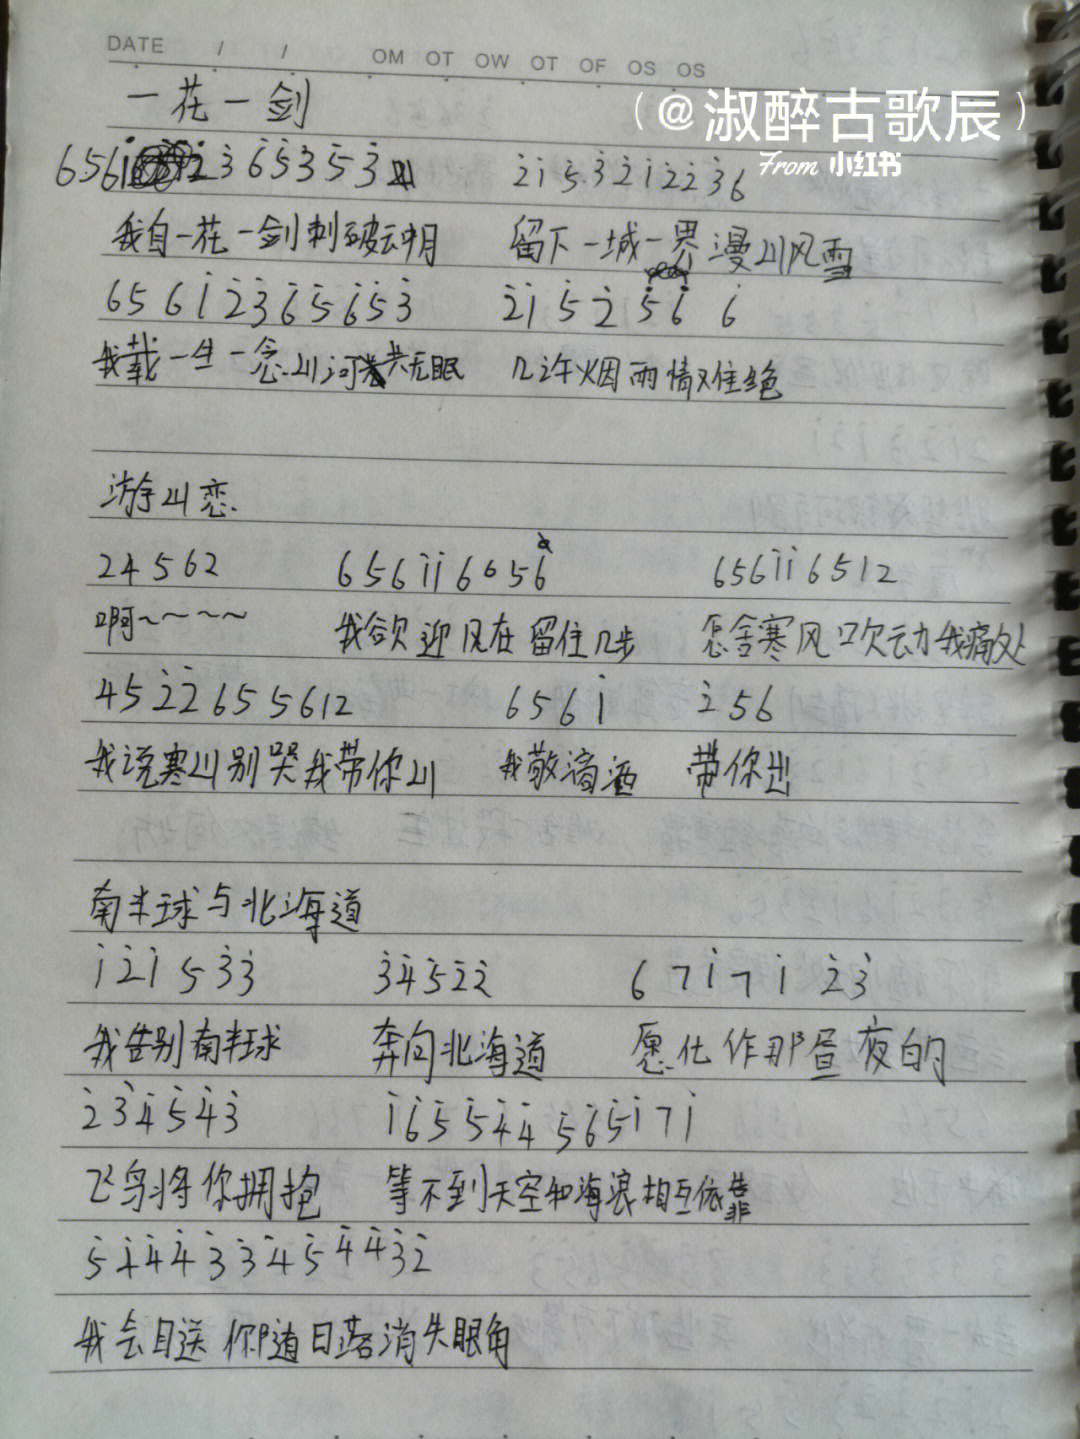 DATE / / OM OT OW OT OF OS OS
一花一剑
(@淑醉古歌辰)
From 小红书
656i 2̇3̇6̇5̇3̇5̇3̇ 2̇i5.3̇2̇i2̇2̇3̇6
我自一花一剑刺破云中月 留下一城一界漫山风雪
656i2̇3̇6̇5̇6̇5̇3̇ 2̇i52̇5̇6̇ 6̇
我载一生一念山河共无眠 几许烟雨情难绝
游山恋
24562 656ii66566̇ 656ii6512
啊~~~~ 我欲迎风在留住几步 怎舍寒风吹动我痛处
452̇2̇655612 656i 2̇56
我说寒山别哭我带你山 我敬滴酒 带你出
南半球与北海道
i2̇i53̇3̇ 3̇4̇5̇2̇2̇ 67i7i2̇3̇
我告别南半球 奔向北海道 愿化作那昼夜的
2̇3̇4̇5̇4̇3̇ i6̇5̇5̇4̇4̇5̇6̇5̇i7i
飞鸟将你拥抱 等不到天空和海浪相互依靠
5̇4̇4̇4̇3̇3̇4̇5̇4̇4̇3̇2̇
我会目送你随日落消失眼角